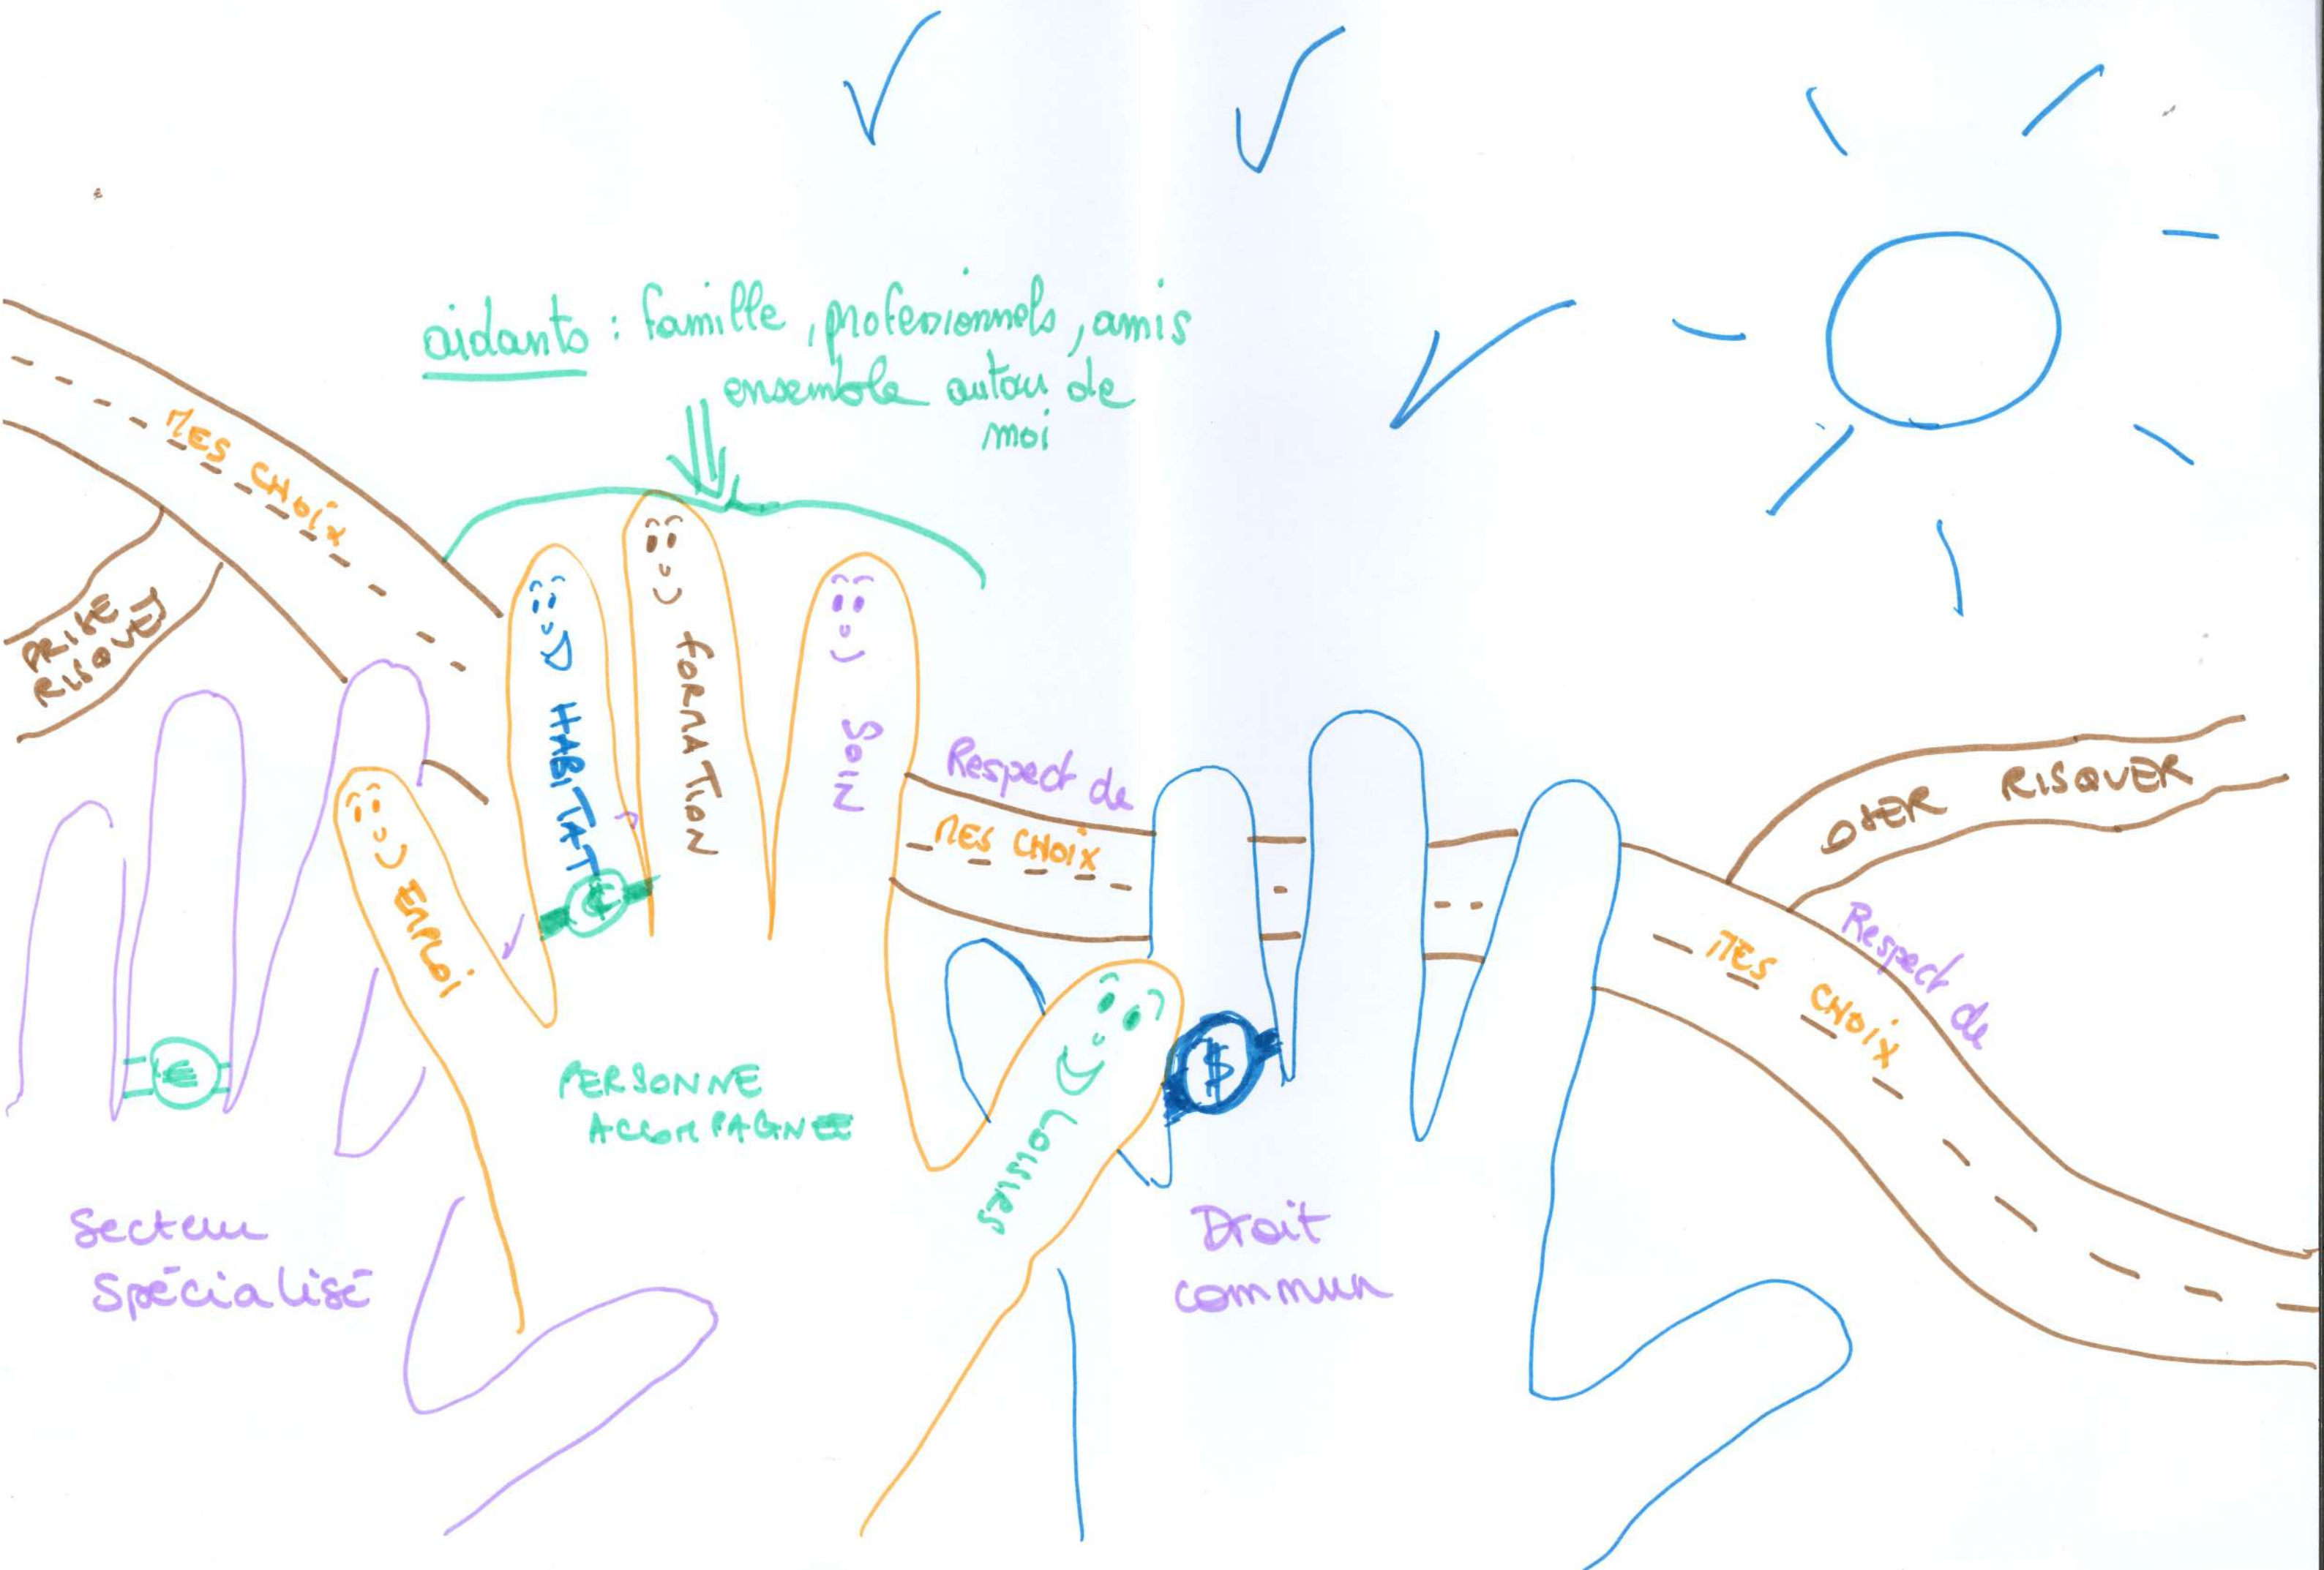 aidants : famille, professionnels, amis
ensemble autou de
moi
MES CHOIX
PRISE
RISQUE
HABITAT
FORMATION
SOIN
EMPLOI
€
€
Respect de
MES CHOIX
OSER RISQUER
Respect de
MES CHOIX
PERSONNE
ACCOMPAGNEE
LOISIRS
$
Secteur
Spécialisé
Droit
commun